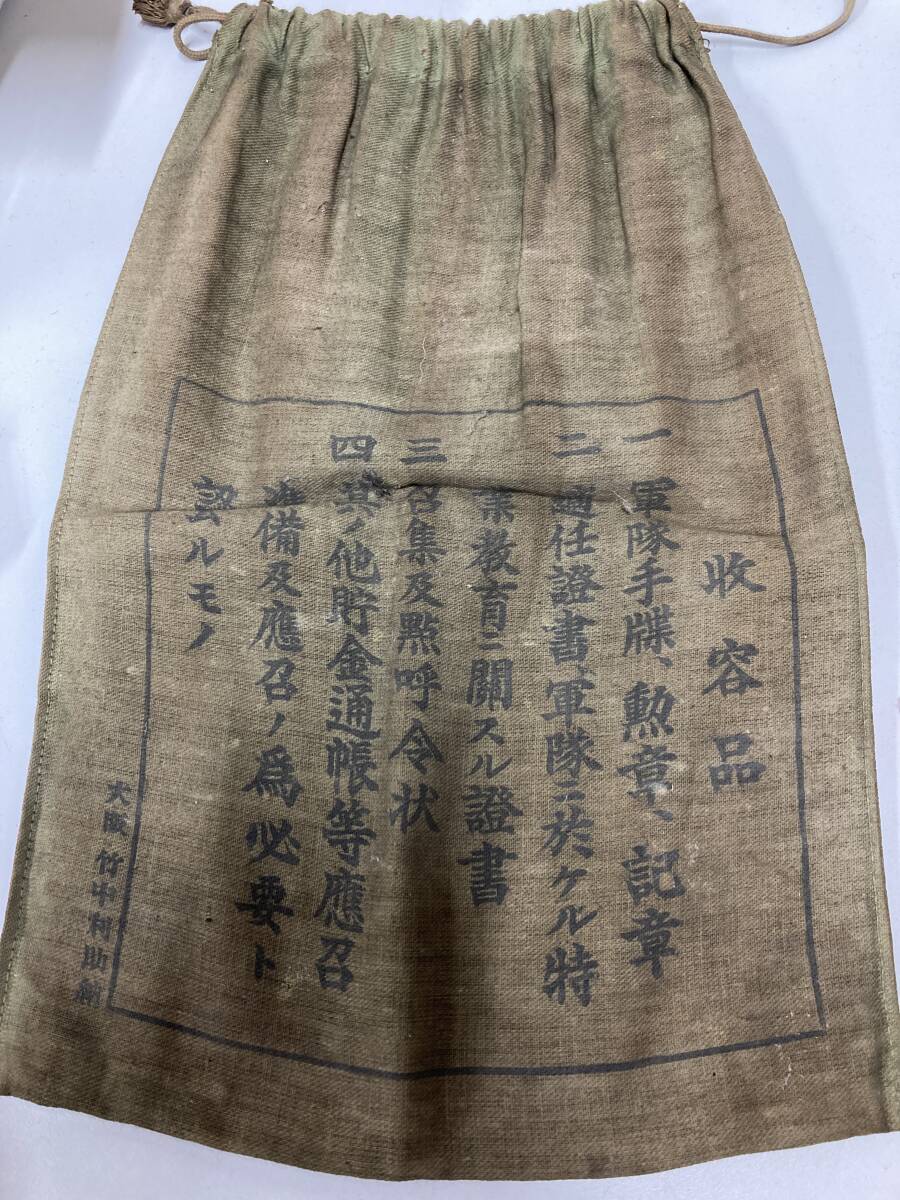 收容品
一 軍隊手牒、勲章、記章
二 適任證書、軍隊ニ於ケル特
業教育ニ關スル證書
三 召集及點呼令状
四 其ノ他貯金通帳等應召
準備及應召ノ爲必要ト
認ムルモノ
大阪 竹中利助納